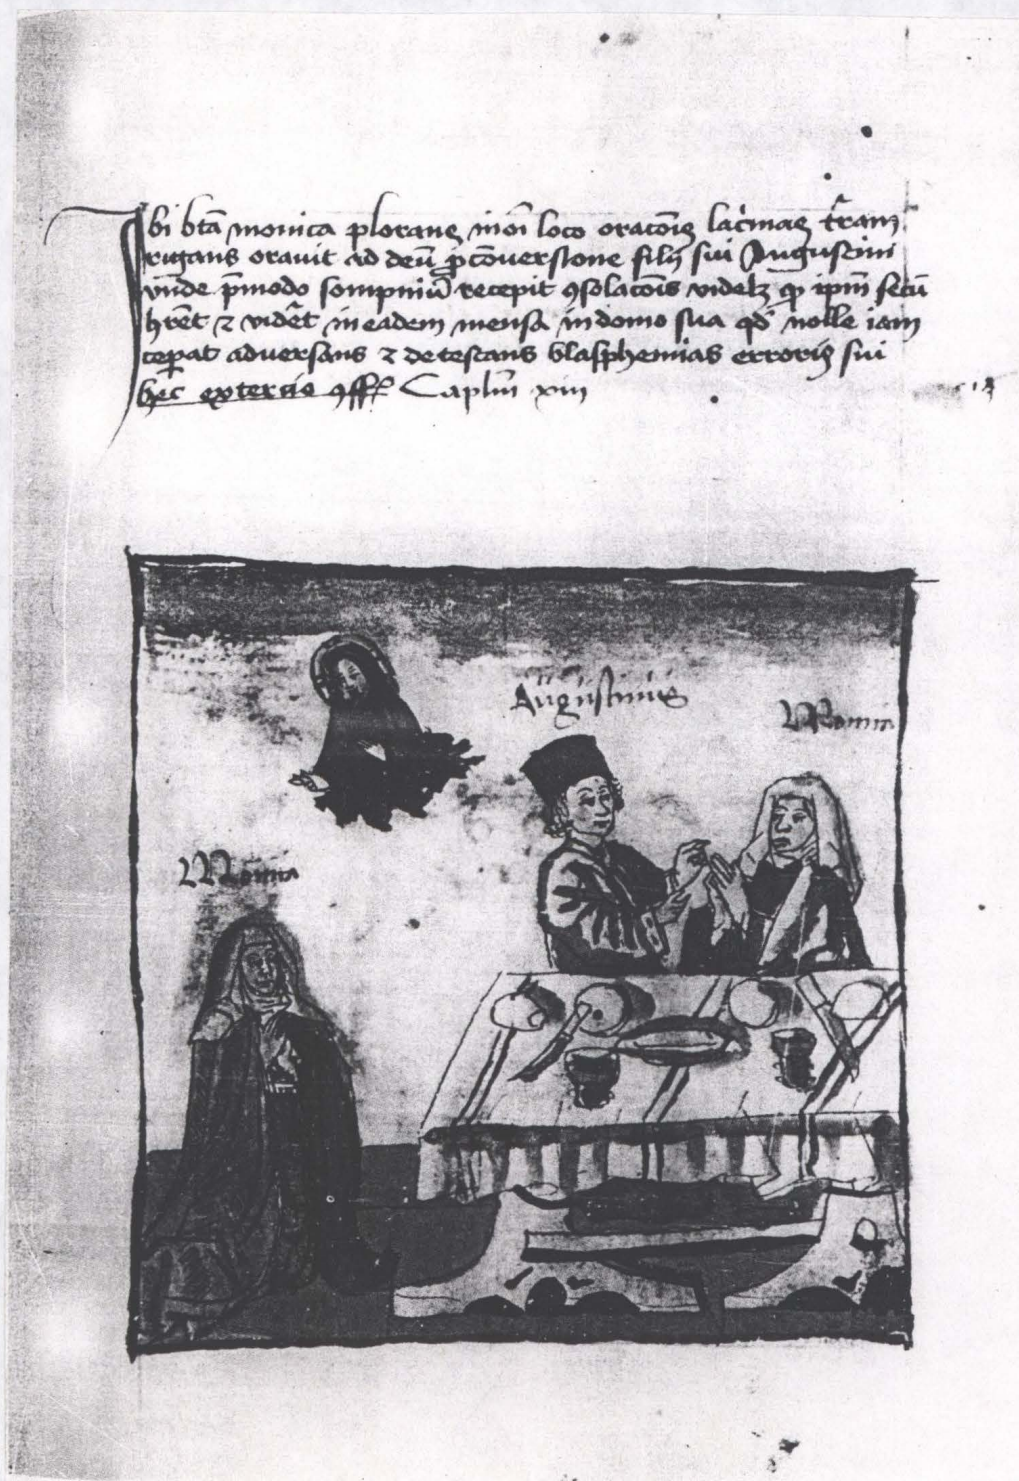 Ibi bt̄a monica plorans in oī loco orac̄oīs lac̄imas t̄ram
rigans oravit ad deū p̄ cōuersione filij sui Augustini
vnde p̄modo sompniū recepit ꝯsolac̄oīs videlꝫ ꝙ ip̄m secū
hr̄et ⁊ vidēt in eadem mensa in domo sua qd̓ nolle iam
ceꝑat aduersans ⁊ detestans blasphemias erroris sui
hec ꝯff Caplm̄ xiii
Augustinus
Monica
Monica